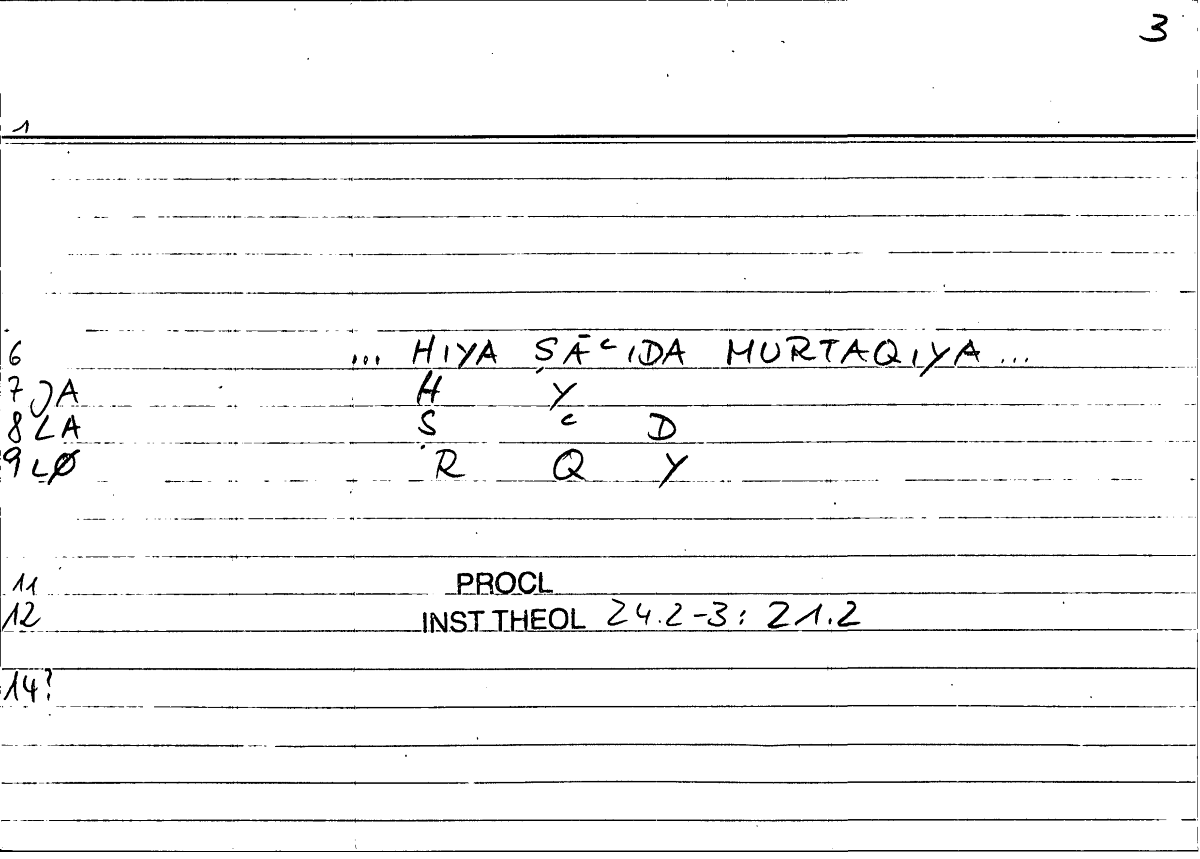 3
1
6 ... HIYA ṢĀʿIDA MURTAQIYA ...
7 JA H Y
8 LA Ṣ ʿ D
9 LØ R Q Y
11 PROCL
12 INST THEOL 24.2-3: 21.2
14?